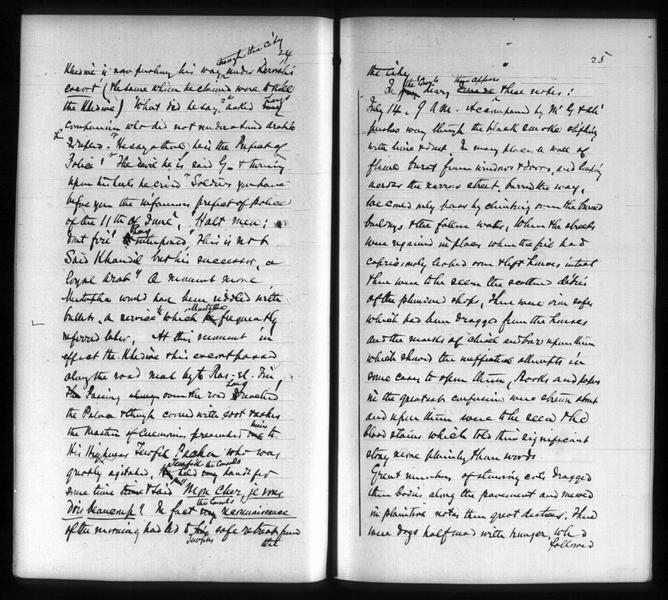 through the City
24
Khedive is now pushing his way under Kerosh's
escort (the same whom he claimed were to kill
the Khedive) What did he say? asked Long
Companion who did not understand Arabic
"He says that he is the Prefect of
Police" "The devil he is said G— & turning
upon his heels he cried "Soldiers you have
before you the infamous prefect of police
of the 11th of June". Halt men!
dont fire! Long interposed, This is not
Said Khandil but his successor, a
loyal Arab" A moment more
Mustapha would have been riddled with
bullets, a service to which Mustapha frequently
referred later. At this moment in
effect the Khedive & his escort passed
along the road that by to Ras-el-Tin
Passing along over the road Long reached
the Palace & though covered with soot & ashes
the Master of Ceremonies presented him to
His Highness Tewfik Pasha who was
greatly agitated, Tewfik held the Consul's hand for
some time and said "Mon Cher je vous
dois beaucoup"? In fact the Consul's reconnaissance
of the morning had led to Tewfik's safe retreat from
the
25
the City.
In the Consul's diary there appears these notes:
July 14. 9 A.M. Accompanied by Mr G & Ali
pushes way through the black smoke slipping
with mire & dust. In many places a wall of
flame burst from windows & doors, and leaping
across the narrow street, barred the way,
we could only pass by climbing over the burned
buildings & the fallen walls. When the streets
were regained in places when the fire had
capriciously leaped over & left houses intact
there were to be seen the scattered debris
of the plundered shops, There were iron safes
which had been dragged from the houses
and the marks of chisel and bars upon them
which showed the ineffective attempts in
some cases to open them, Books and papers
in the greatest confusion were strewn about
and upon them were to be seen the
blood stains which told their significant
story more plainly than words
Great numbers of starving cats dragged
their bodies along the pavement and mewed
in plaintive notes their great distress. There
were dogs half mad with hunger, who
followed